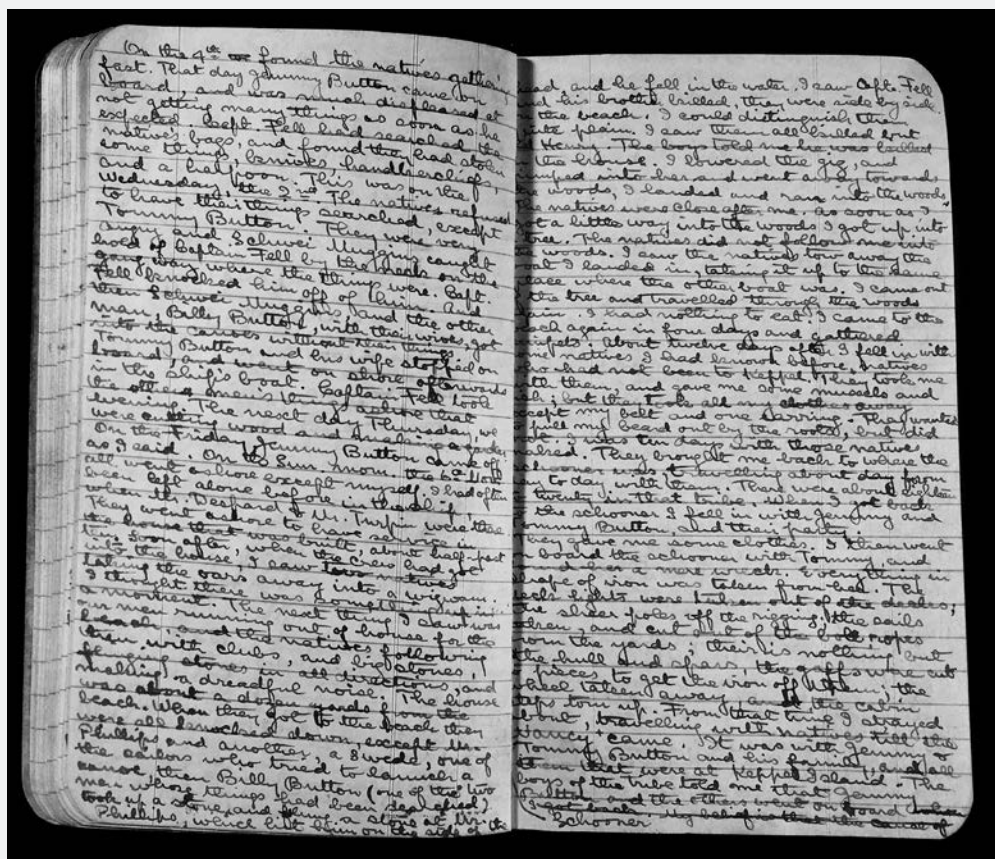 On the 4th we found the natives gathering
fast. That day Jemmy Button came on
board, and was much displeased at
not getting many things as soon as he
expected. Capt. Fell had searched the
native's bags, and found they had stolen
some things, knives, handkerchiefs,
and a harpoon. This was on the
Wednesday, the 2nd. The natives refused
to have their things searched, except
Tommy Button. They were very
angry and Schwei Muggins caught
hold of Captain Fell by the neck on the
gangway where the things were. Capt.
Fell knocked him off of him. And
then Schwei Muggins, and the other
man, Billy Button, with their wives, got
into the canoes without their things.
Tommy Button and his wife stopped on
board, and went on shore afterwards
in the ship's boat. Captain Fell took
the other men's things ashore that
evening. The next day Thursday, we
were cutting wood and making a garden.
On the Friday Jemmy Button came off
as I said. On the Sun. morn. the 6th Nov.
all went ashore except myself. I had often
been left alone before in the ship,
when Mr. Despard & Mr. Turpin were there
They went ashore to have service in
the house that was built, about half-past
ten. Soon after, when the crew had got
into the house, I saw two natives
taking the oars away into a wigwam.
I thought there was something up in
a moment. The next thing I saw was
our men running out of house for the
beach, and the natives following
them with clubs, and big stones,
flinging stones in all directions, and
making a dreadful noise. The house
was about a dozen yards from the
beach. When they got to the beach they
were all knocked down, except Mr.
Phillips and another, a Swede, one of
the sailors who tried to launch a
canoe, then Bill Button (one of the two
men whose things had been searched)
took up a stone and flung a stone at Mr.
Phillips, which hit him on the side of the
head, and he fell in the water. I saw Capt. Fell
and his brother killed, they were side by side
on the beach. I could distinguish them
quite plain. I saw them all killed but
Henry. The boys told me he was killed
in the house. I lowered the gig, and
jumped into her and went away towards
the woods, I landed and ran into the woods,
The natives were close after me. as soon as I
got a little way into the woods I got up into
tree. The natives did not follow me into
the woods. I saw the natives tow away the
boat I landed in, taking it up to the same
place where the other boat was. I came out
the tree and travelled through the woods
again. I had nothing to eat. I came to the
beach again in four days and gathered
About twelve days after I fell in with
some natives I had known before, natives
who had not been to Keppel. They took me
with them, and gave me some mussels and
fish; but they took all my clothes away
except my belt and one earring. They wanted
to pull my beard out by the roots, but did
not. I was ten days with those natives
naked. They brought me back to where the
schooner was, travelling about day from
day to day with them. They were about eighteen
twenty in that tribe. When I got back
to the schooner I fell in with Jemmy and
Tommy Button, and their party.
They gave me some clothes. I then went
on board the schooner with Tommy, and
found her a mere wreck. Everything in
shape of iron was taken from her. The
deck lights were taken out of the decks;
the poles off the rigging; the sails
and cut out of the bolt ropes
from the yards; their is nothing but
the hull and spars, the gaffs were cut
pieces to get the iron off them; the
wheel taken away, and the cabin
torn up. From that time I strayed
about, travelling with natives till the
Nancy came. It was with Jemmy &
Tommy Button and his family, and all
that were at Keppel Island. The
boys of the tribe told me that Jemmy
Button and the others went on board
I got back. My belief is that the cause of
Schooner.